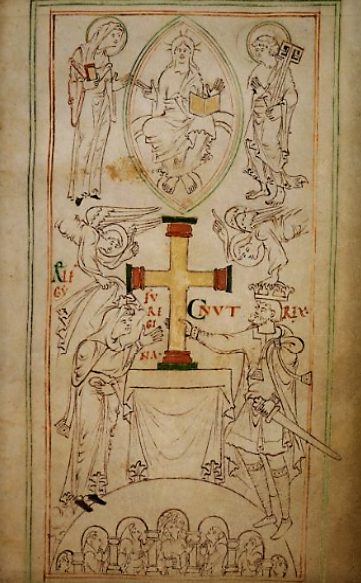 ÆLF
GY
FV
RE
GI
NA
CNVT REX